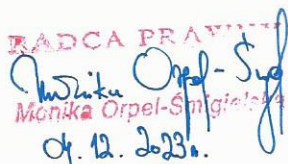 RADCA PRAWNY
Monika Orpel-Śmigielska
04. 12. 2023 r.